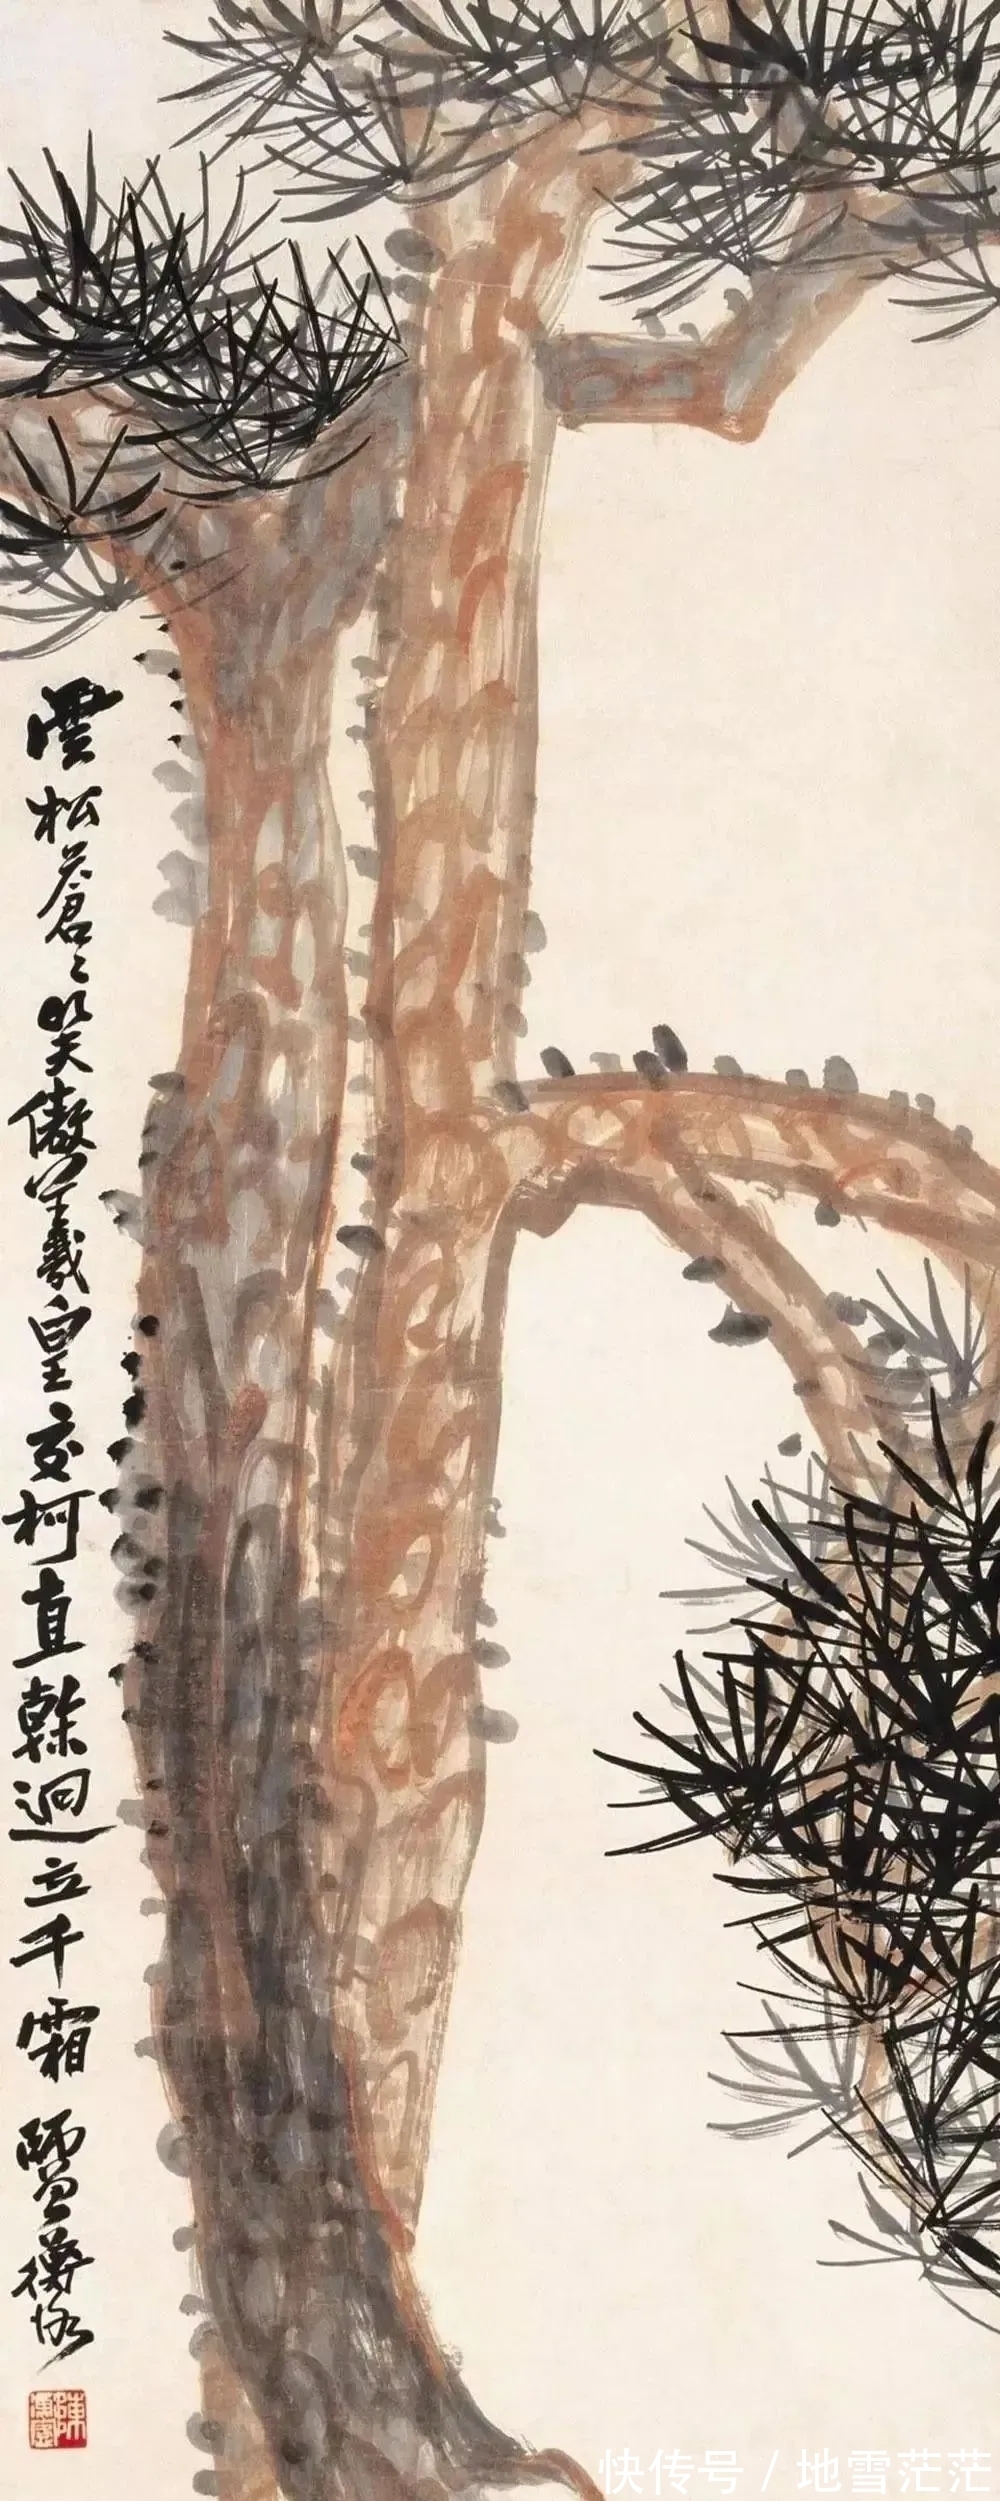 雲松蒼々笑傲羲皇交柯直榦迥立千霜 師曾衡恪
快传号 / 地雪茫茫